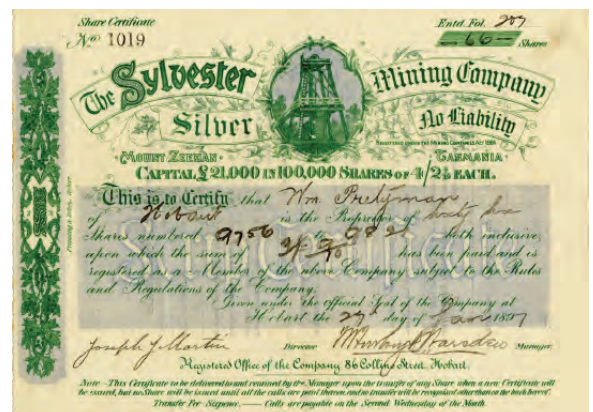 Share Certificate
No 1019
Entd. Fol. 207
66 Shares
The Sylvester Silver Mining Company
No Liability
REGISTERED UNDER THE MINING COMPANIES ACT
MOUNT ZEEHAN TASMANIA
CAPITAL £21,000 IN 100,000 SHARES OF 4/2½ EACH.
This is to Certify that Wm. Pretyman
of Hobart is the Proprietor of sixty six
Shares numbered 9756 to 9821 both inclusive,
upon which the sum of has been paid and is
registered as a Member of the above Company subject to the Rules
and Regulations of the Company.
Given under the official Seal of the Company at
Hobart the 27th day of Jany 1897
Joseph J. Martin Director Manager.
Registered Office of the Company 86 Collins Street, Hobart.
Note - This Certificate to be delivered to and retained by the Manager upon the transfer of any Share when a new Certificate will
be issued, but no Share will be issued until all the calls are paid thereon, and no transfer will be recognised other than on the back hereof.
Transfer Fee Sixpence. — Calls are payable on the Second Wednesday of the Month.